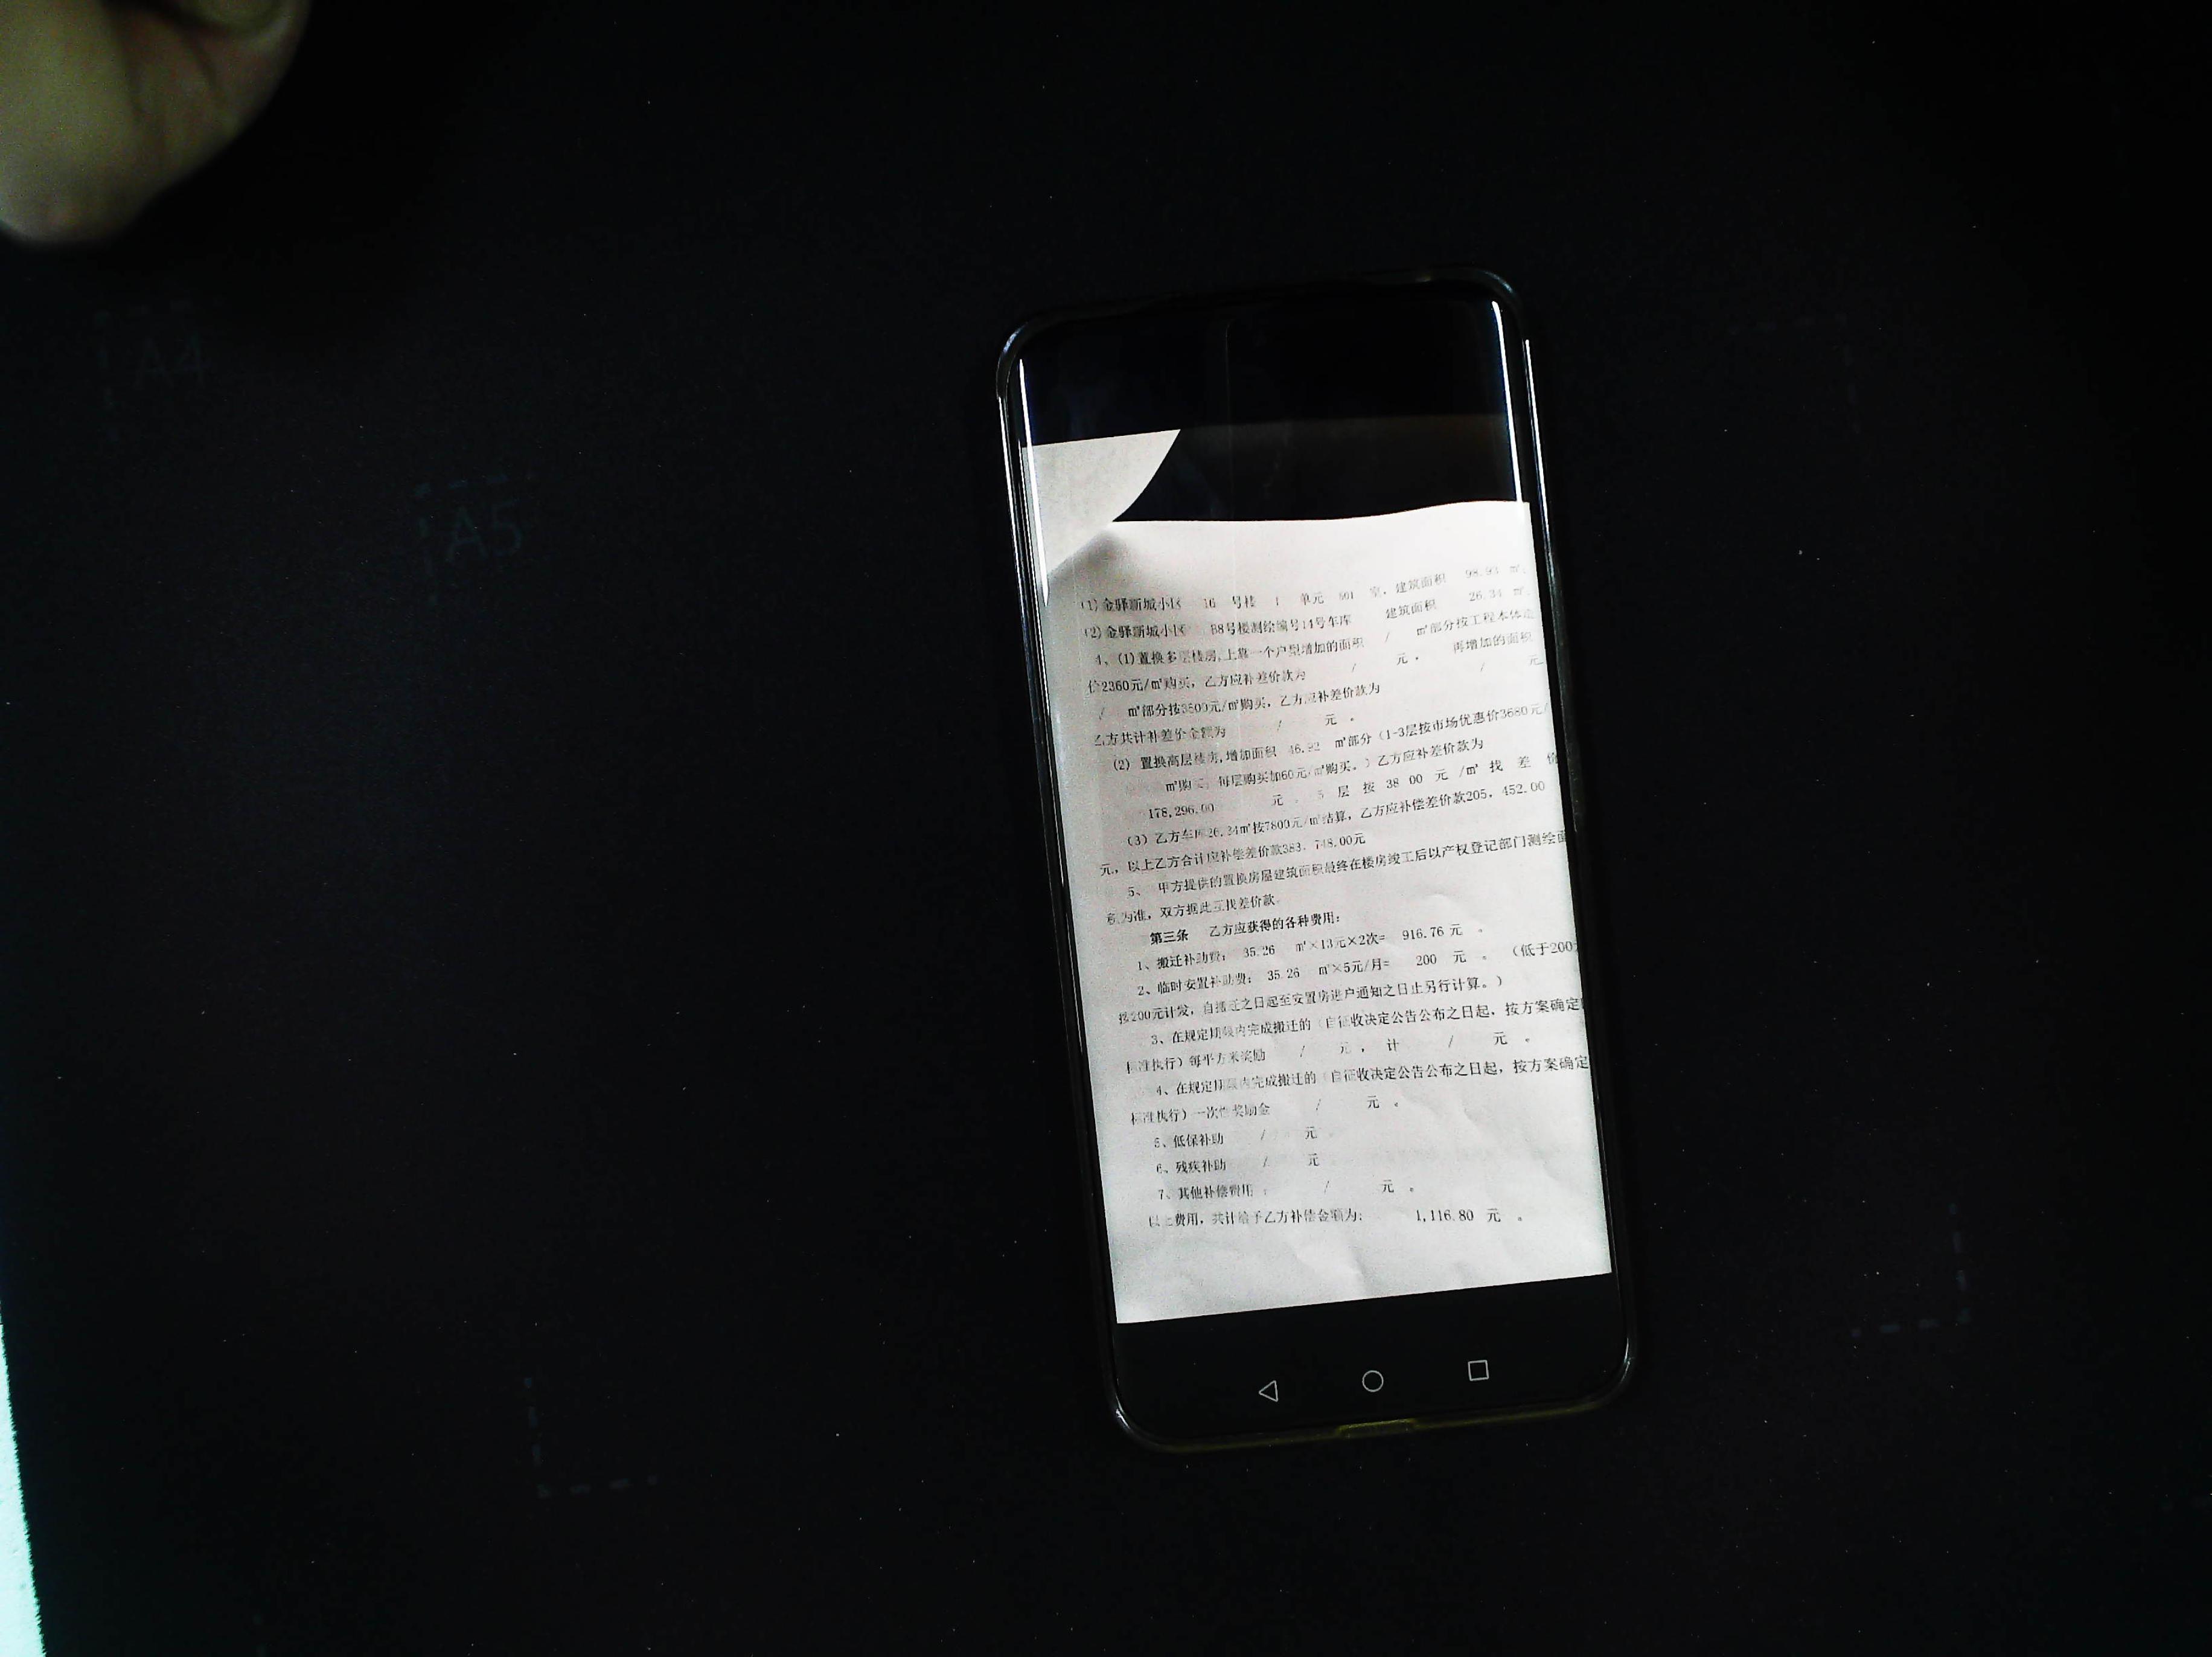 A4
A5
(1)金驿新城小区 16 号楼 1 单元 501 室，建筑面积 98.93 ㎡，
(2)金驿新城小区 B8号楼测绘编号14号车库 建筑面积 26.34 ㎡，
4、(1)置换多层楼房,上靠一个户型增加的面积 / ㎡部分按工程本体造
价2360元/㎡购买，乙方应补差价款为 / 元， 再增加的面积
/ ㎡部分按3500元/㎡购买，乙方应补差价款为 / 元
乙方共计补差价金额为 / 元 。
(2) 置换高层楼房,增加面积 46.92 ㎡部分（1-3层按市场优惠价3680元/
㎡购买，每层购买加60元/㎡购买。）乙方应补差价款为
178,296.00 元 5 层 按 38 00 元 /㎡ 找 差 价
(3) 乙方车库26.34㎡按7800元/㎡结算，乙方应补偿差价款205，452.00
元，以上乙方合计应补偿差价款383，748.00元
5、 甲方提供的置换房屋建筑面积最终在楼房竣工后以产权登记部门测绘面
积为准，双方据此互找差价款
第三条 乙方应获得的各种费用：
1、搬迁补助费： 35.26 ㎡×13元×2次= 916.76 元 。
2、临时安置补助费： 35.26 ㎡×5元/月= 200 元 。 （低于200元
按200元计发，自搬迁之日起至安置房进户通知之日止另行计算。）
3、在规定期限内完成搬迁的（自征收决定公告公布之日起，按方案确定
标准执行）每平方米奖励 / 元， 计 / 元 。
4、在规定期限内完成搬迁的（自征收决定公告公布之日起，按方案确定
标准执行）一次性奖励金 / 元 。
5、低保补助 / 元 。
6、残疾补助 / 元
7、其他补偿费用 ： / 元 。
以上费用，共计给予乙方补偿金额为： 1,116.80 元 。